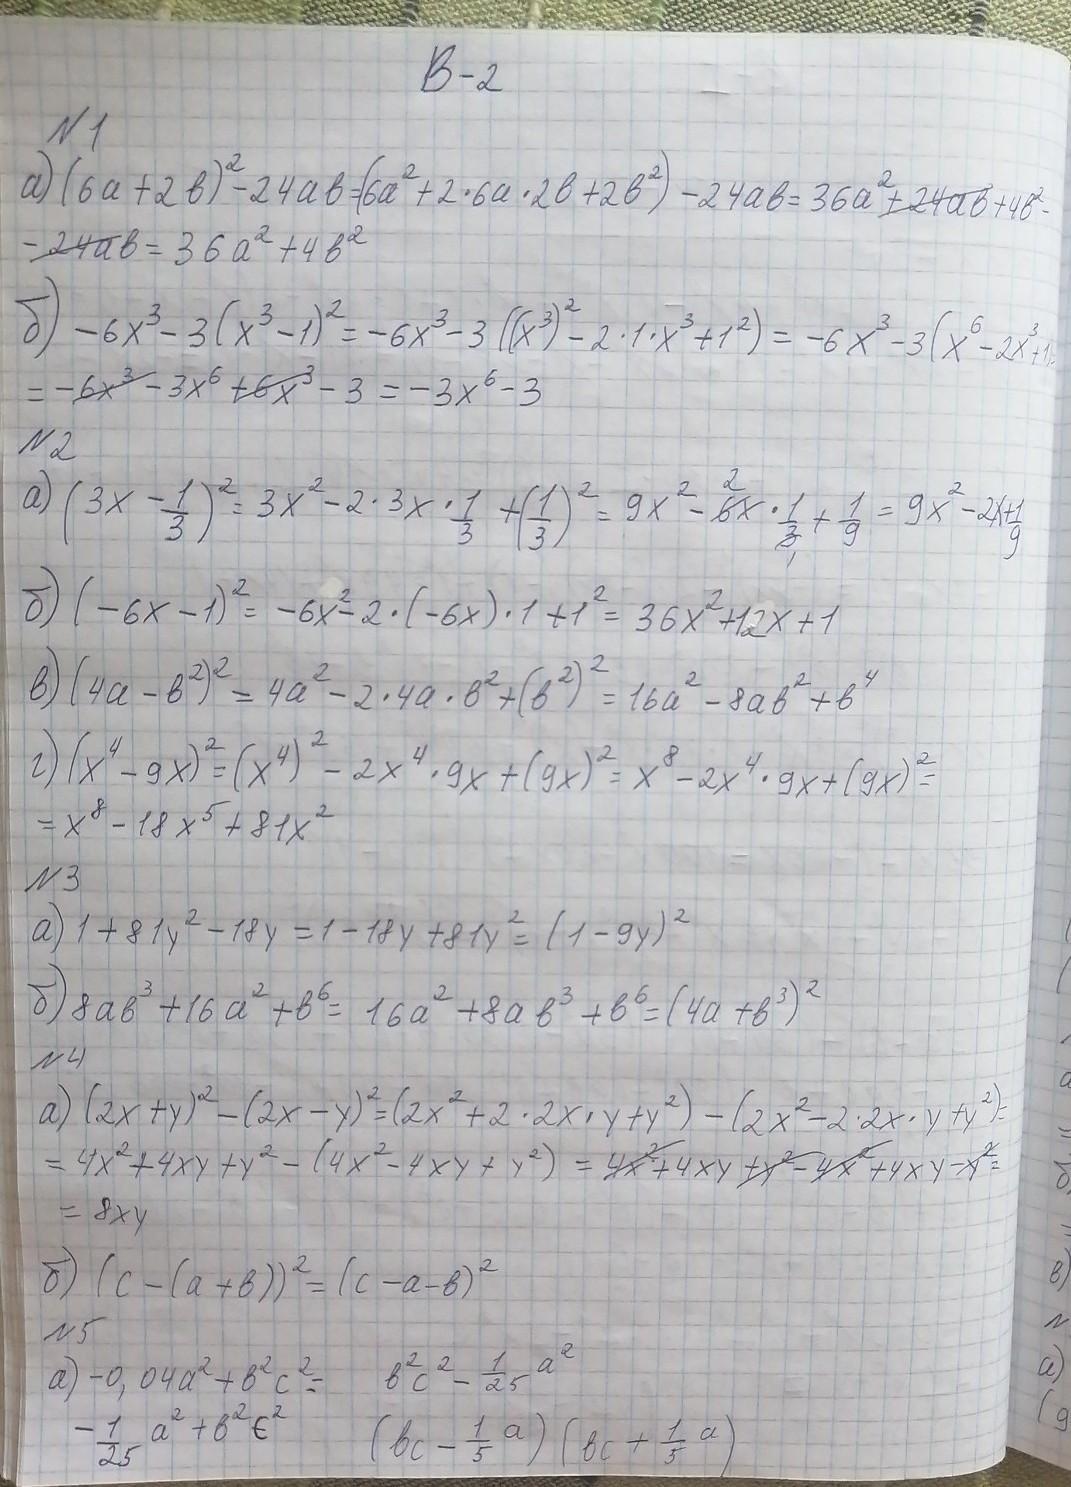 В-2
№1
а) (6а+2в)²-24ав=(6а²+2·6а·2в+2в²)-24ав=36а²+24ав+4в²-
-24ав=36а²+4в²
б) -6x³-3(x³-1)²=-6x³-3((x³)²-2·1·x³+1²)=-6x³-3(x⁶-2x³+1)=
=-6x³-3x⁶+6x³-3=-3x⁶-3
№2
а) (3x-1/3)²=3x²-2·3x·1/3+(1/3)²=9x²-6x·1/3+1/9=9x²-2x+1/9
б) (-6x-1)²=-6x²-2·(-6x)·1+1²=36x²+12x+1
в) (4а-в²)²=4а²-2·4а·в²+(в²)²=16а²-8ав²+в⁴
г) (x⁴-9x)²=(x⁴)²-2x⁴·9x+(9x)²=x⁸-2x⁴·9x+(9x)²=
=x⁸-18x⁵+81x²
№3
а) 1+81y²-18y=1-18y+81y²=(1-9y)²
б) 8ав³+16а²+в⁶=16а²+8ав³+в⁶=(4а+в³)²
№4
а) (2x+y)²-(2x-y)²=(2x²+2·2x·y+y²)-(2x²-2·2x·y+y²)=
=4x²+4xy+y²-(4x²-4xy+y²)=4x²+4xy+y²-4x²+4xy-y²=
=8xy
б) (с-(а+в))²=(с-а-в)²
№5
а) -0,04а²+в²с²= в²с²-1/25 а²
-1/25 а²+в²с² (вс-1/5 а)(вс+1/5 а)